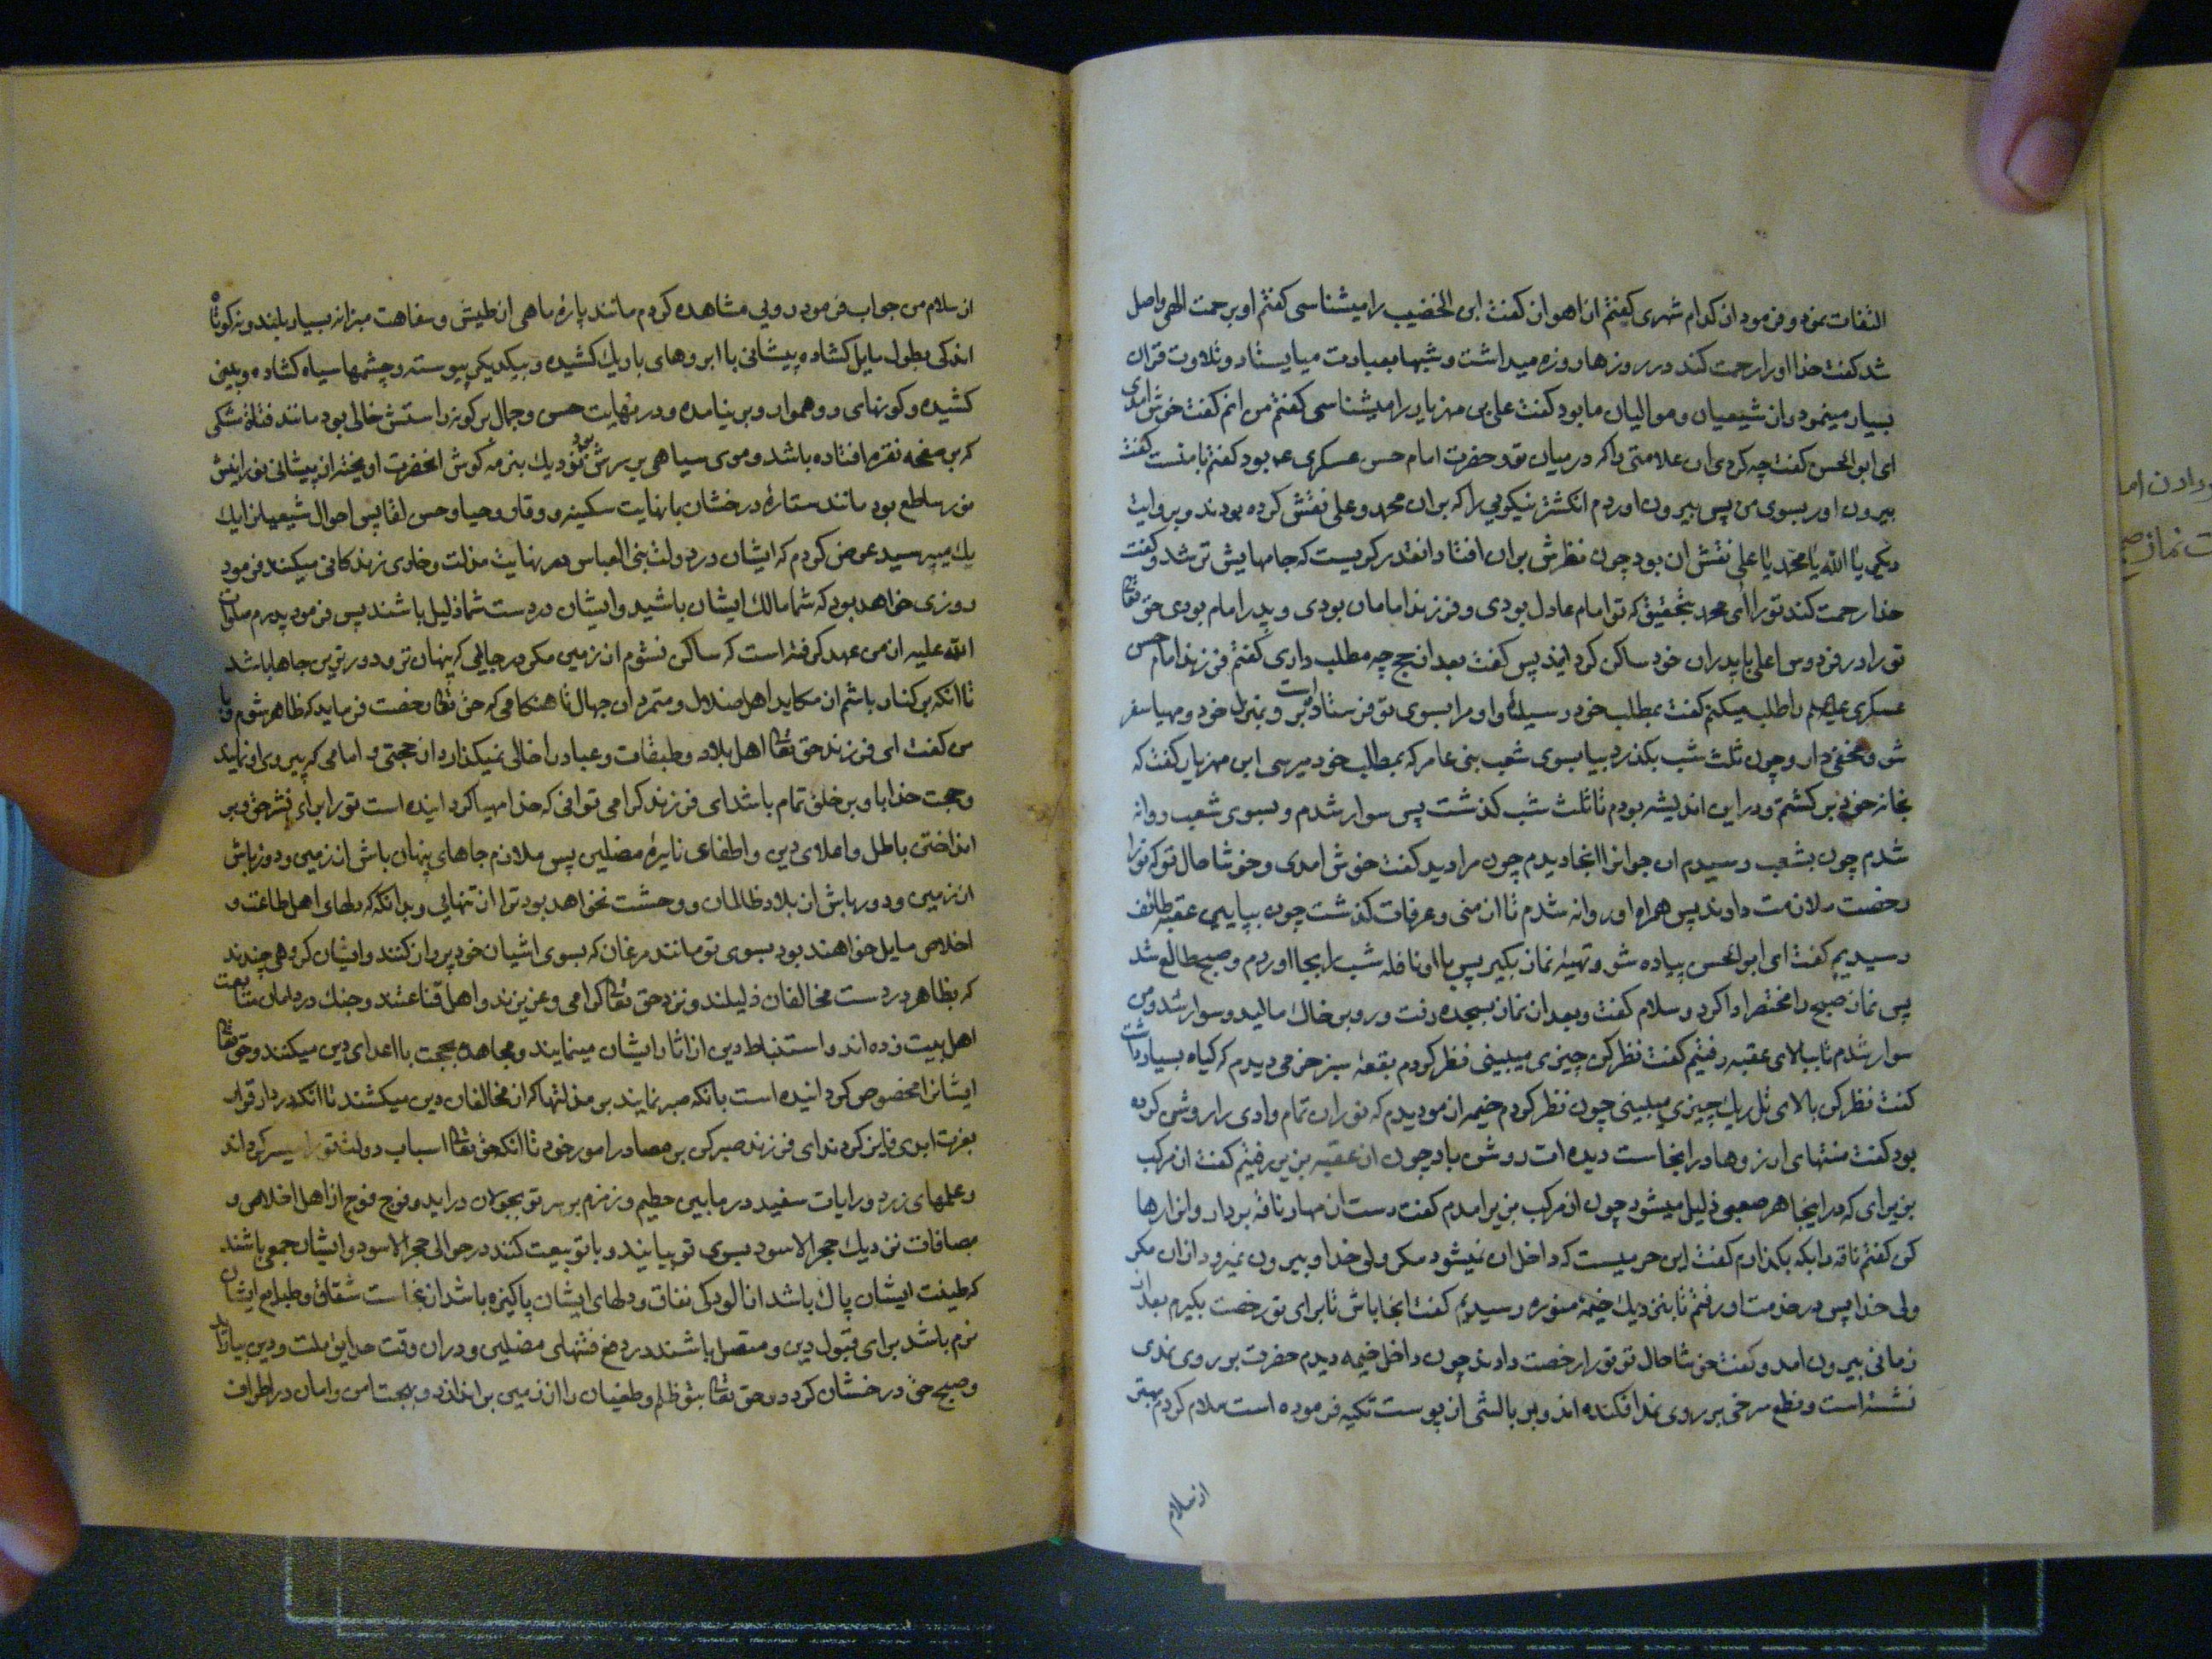 التفات نمود و فرمود از کدام شهری گفتم از اهواز گفت ابن الخضیب را میشناسی گفتم او برحمت الهی واصل
شد گفت خدا او را رحمت کند در روزها روزه میداشت و شبها بعبادت میایستاد و تلاوت قران
بسیار مینمود و از شیعیان و موالیان ما بود گفت علی بن مهزیار را میشناسی گفتم من انم گفت خوش امدی
ای ابو الحسن گفت چه کردی ان علامتی را که در میان تو و حضرت امام حسن عسکری ع بود گفتم با منست گفت
بیرون اور بسوی من پس بیرون اوردم انکشتر نیکویی را که بر ان محمد و علی نقش کرده بودند و بروایت
دیگر یا الله یا محمد یا علی نقش ان بود چون نظرش بر ان افتاد انقدر گریست که جامهایش تر شد و گفت
خدا رحمت کند تو را ای محمد بتحقیق که تو امام عادل بودی و فرزند امامان بودی و پدر امام بودی حق تعالی
تو را در فردوس اعلی با پدران خود ساکن گردانید پس گفت بعد از حج چه مطلب داری گفتم فرزند امام حسن
عسکری علیه السلم را طلب میکنم گفت بمطلب خود رسیدهٔ و او مرا بسوی تو فرستاده است برو بمنزل خود و مهیا سفر
شو و مخفی دار و چون ثلث شب بگذرد بیا بسوی شعب بنی عامر که بمطلب خود میرسی ابن مهزیار گفت که
بخانه خود برگشتم و در این اندیشه بودم تا ثلث شب گذشت پس سوار شدم و بسوی شعب روانه
شدم چون بشعب رسیدم ان جوان را انجا دیدم چون مرا دید گفت خوش امدی و خوشا حال تو که تو را
رخصت ملازمت دادند پس همراه او روانه شدم تا از منی و عرفات گذشت چون بپایین عقبه طائف
رسیدیم گفت ای ابو الحسن پیاده شو و تهیهٔ نماز بگیر پس با او نافله شب را بجا اوردم و صبح طالع شد
پس نماز صبح را مختصر ادا کرد و سلام گفت و بعد از نماز بسجده رفت و رو بر خاک مالید و سوار شد و من
سوار شدم تا ببالای عقبه رفتیم گفت نظر کن چیزی میبینی نظر کردم بقعهٔ سبز خرمی دیدم که گیاه بسیار داشت
گفت نظر کن بالای تل ریک چیزی میبینی چون نظر کردم خیمه از مو دیدم که نور ان تمام وادی را روشن کرده
بود گفت منتهای ارزوها در انجاست دیده ات روشن باد چون از عقبه بزیر رفتیم گفت از مرکب
بزیر ای که در اینجا هر صعبی ذلیل میشود چون از مرکب بزیر امدم گفت دست از مهار ناقه بردار و انرا رها
کن گفتم ناقه را بکه بگذارم گفت این حرمیست که داخل ان نمیشود مگر ولی خدا و بیرون نمیرود از ان مگر
ولی خدا پس در خدمت او رفتم تا بنزدیک خیمهٔ منوره رسیدم گفت اینجا باش تا برای تو رخصت بگیرم بعد از
زمانی بیرون امد و گفت خوشا حال تو تو را رخصت دادند چون داخل خیمه دیدم حضرت بر روی نمدی
نشسته است و نطع سرخی بر روی نمد افکنده اند و بر بالشی از پوست تکیه فرموده است سلام کردم بهتر
از سلام
از سلام من جواب فرمود رویی مشاهده کردم مانند پارهٔ ماهی از طیش و سفاهت مبرا نه بسیار بلند و نه کوتاه
اندکی بطول مایل گشاده پیشانی با ابروهای باریک کشیده و بیکدیگر پیوسته و چشمها سیاه گشاده و بینی
کشیده و گونهای رو هموار و بر نیامده و در نهایت حسن و جمال بر گونه راستش خالی بود مانند فتاة مشکی
که بر صفحه نقره افتاده باشد و موی سیاهی بر سرش بود نزدیک بنرمه گوش انحضرت اویخته از پیشانی نورانیش
نور ساطع بود مانند ستارهٔ درخشان با نهایت سکینه و وقار و حیا و حسن لقا پس احوال شیعیان را یک
یک میپرسید عرض کردم که ایشان در دولت بنی العباس در نهایت مذلت و خواری زندکانی میکنند فرمود
روزی خواهد بود که شما مالک ایشان باشید و ایشان در دست شما ذلیل باشند پس فرمود پدرم صلوات
الله علیه از من عهد گرفته است که ساکن نشوم از زمین مگر در جایی که پنهان تر و دورترین جاها باشد
تا انکه بر کنار باشم از مکاید اهل ضلال و متمردان جهال تا هنگامی که حق تعالی رخصت فرماید که ظاهر شوم و با
من گفت ای فرزند حق تعالی اهل بلاد و طبقات و عباد را خالی نمیگذارد از حجتی و امامی که پیروی او نمایند
و حجت خدا باو بر خلق تمام باشد ای فرزند گرامی تو انی که خدا مهیا گردانیده است تو را برای نشر حق و بر
انداختن باطل و اعلای دین و اطفای نایرهٔ مضلین پس ملازم جاهای پنهان باش از زمین و دور باش
از زمین و دور باش از بلاد ظالمان و وحشت نخواهد بود ترا از تنهایی و بدانکه که دلهای اهل طاعت و
اخلاص مایل خواهند بود بسوی تو مانند مرغان که بسوی اشیان خود پرواز کنند و ایشان گروهی چندند
که بظاهر در دست مخالفان ذلیلند و نزد حق تعالی گرامی و عزیزند و اهل قناعتند و چنک در دامان متابعت
اهل بیت زده اند و استنباط دین از اثار ایشان مینمایند و مجاهده بحجت با اعدای دین میکنند و حق تعالی
ایشانرا مخصوص گردانیده است بانکه صبر نمایند بر مذلتها که از مخالفان دین میکشند تا انکه در دار قرار
بعزت ابدی فایز گردند ای فرزند صبر کن بر مصادر امور خود تا انکه حق تعالی اسباب دولت تو را میسر گرداند
و علمهای زرد و رایات سفید در ما بین حطیم و زمزم بر سر تو بجولان در اید و فوج فوج از اهل اخلاص و
مصافات نزدیک حجر الاسود بسوی تو بیایند و با تو بیعت کنند در حوالی حجر الاسود و ایشان جمعی باشند
که طینت ایشان پاک باشد از الودگی نفاق و دلهای ایشان پاکیزه باشد از نجاست شقاق و طبایع ایشان
نرم باشد برای قبول دین و متصل باشند در دفع فتنهای مضلین و در ان وقت حدایق ملت و دین ببار اید
و صبح حق درخشان گردد و حق تعالی بتو ظلم و طغیان را از زمین بر اندازد و بهجت امن و امان در اطراف